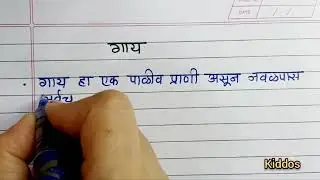 गाय
. गाय हा एक पाळीव प्राणी असून जवळपास
सर्वच
Kiddos